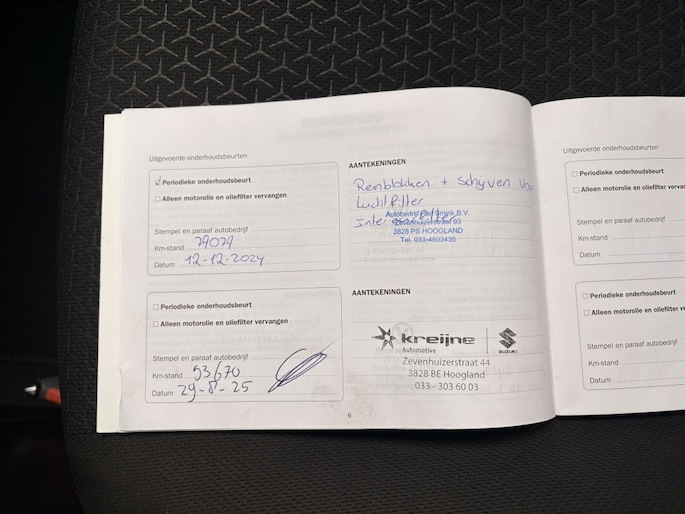 Uitgevoerde onderhoudsbeurten
Periodieke onderhoudsbeurt
Alleen motorolie en oliefilter vervangen
Stempel en paraaf autobedrijf
Km-stand 79079
Datum 12-12-2024
AANTEKENINGEN
Remblokken + schijven Voor
Luchtfilter
Interieurfilter
Autobedrijf Stef Smink B.V.
Zevenhuizerstraat 93
3828 PS HOOGLAND
Tel. 033-4803435
Periodieke onderhoudsbeurt
Alleen motorolie en oliefilter vervangen
Stempel en paraaf autobedrijf
Km-stand 93670
Datum 29-8-25
AANTEKENINGEN
kreijne
Automotive
SUZUKI
Zevenhuizerstraat 44
3828 BE Hoogland
033 - 303 60 03
6
Uitgevoerde onderhoudsbeurten
Periodieke onderhoudsbeurt
Alleen motorolie en oliefilter verva
Stempel en paraaf autobedrijf
Km-stand
Datum
Periodieke onderhoudsbeurt
Alleen motorolie en oliefilter ve
Stempel en paraaf autobedrijf
Km-stand
Datum